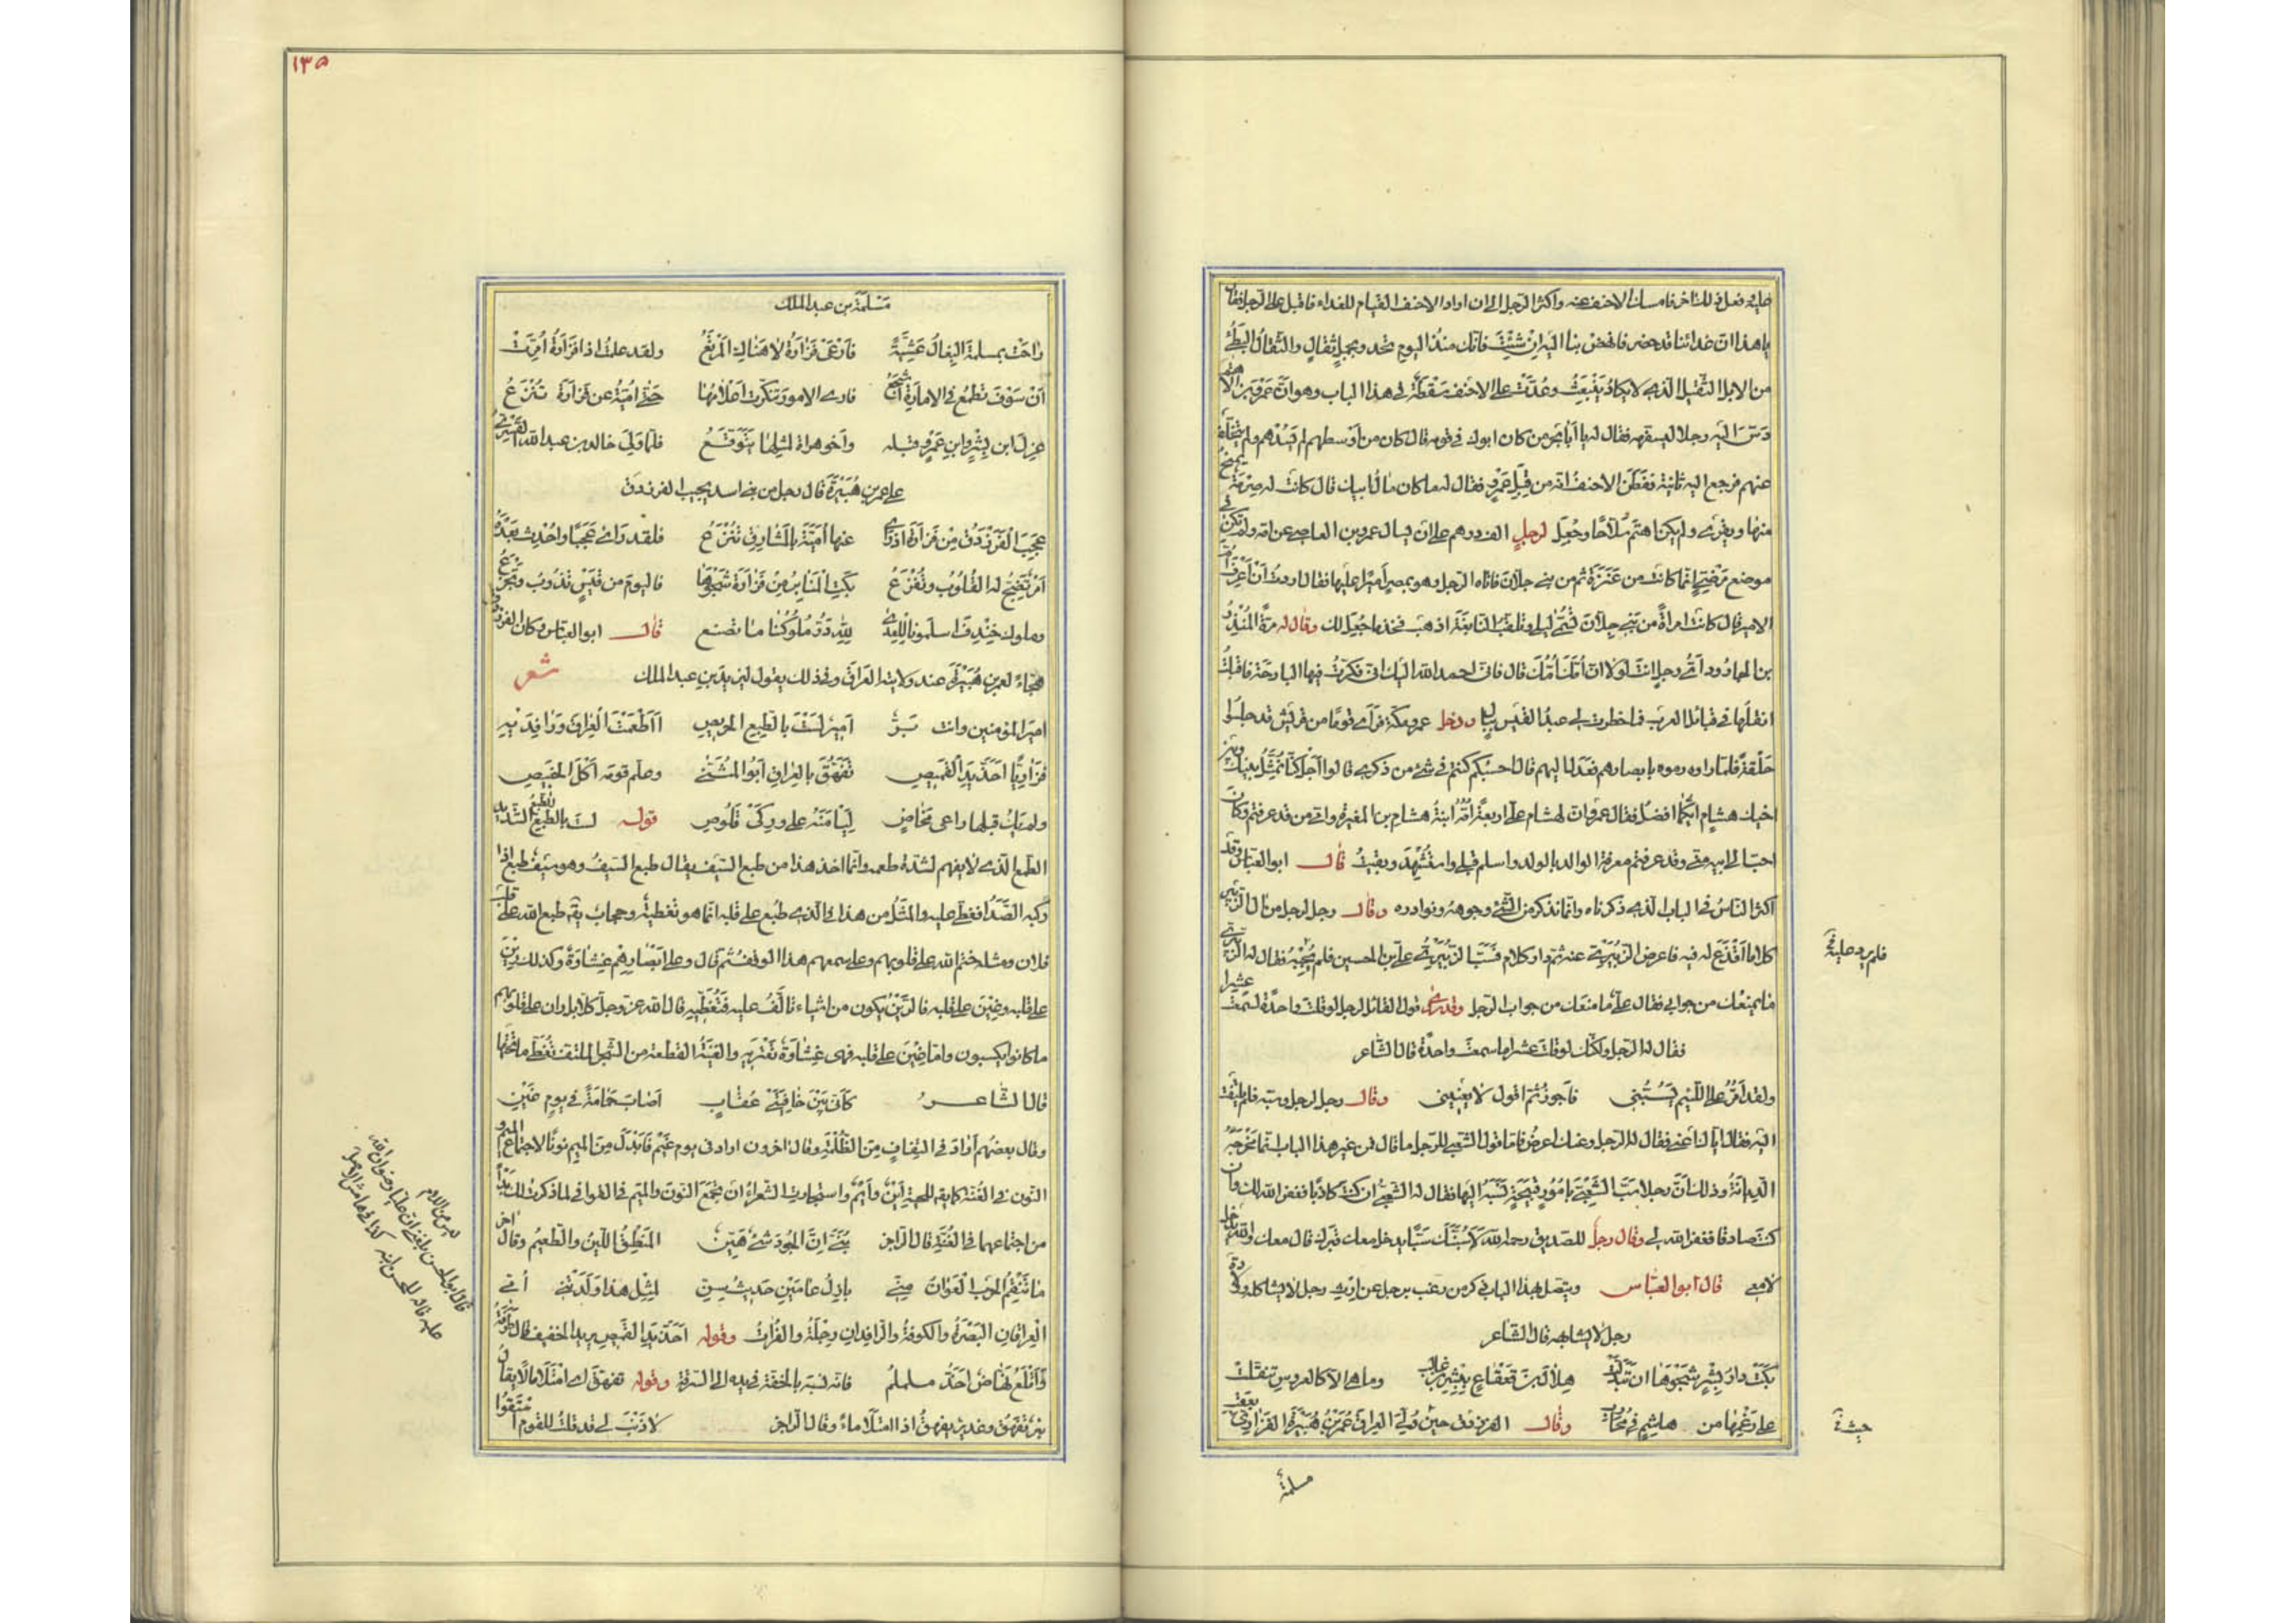 عليه فعل ذلك اخر فامسك الاحنف عنه واكثر الرجل الى ان اراد الاحنف القيام للغداء فاقبل على الرجل فقال
يا هذا ان غدائنا قد حضر فانهض بنا اليه ان شئت فانك منذ اليوم تحدو بجمل ثفال والثفال البطئ
من الابل الثقيل الذى لا يكاد ينبعث وعدت على الاحنف سقطة فى هذا الباب وهو ان عمرو بن الاهتم
دس اليه رجلا ليسفهه فقال له يا ابا بحر من كان ابوك فى قومه قال كان من اوسطهم لم يسدهم ولم يتخلف
عنهم فرجع اليه ثانية ففطن الاحنف انه من قبل عمرو فقال له ما كان مال ابيك قال كانت له صرمة يمنح
منها ويقرى ولم يكن اهتم سلاحا وجعل لرجل الف درهم على ان يسال عمرو بن العاص عن امه ولم تكن فى
موضع مرضي انما كانت من عنزة ثم من بنى جلان فاتاه الرجل وهو بمصر اميرا عليها فقال اردت ان اعرف ام
الامير قال كانت امراة من بنى جلان تسمى ليلى وتلقب النابغة اذهب فخذ ما جعل لك وقال له مرة المنذر
بن الجارود اى رجل انت لولا ان امك امك قال فانى احمد الله اليك انى فكرت فيها البارحة فاقبلت
انقلها فى قبائل العرب فما خطرت لى عبد القيس ببال ودخل عمرو مكة فراى قوما من قريش قد جلسوا
حلقة فلما راوه رموه بابصارهم فعدل اليهم فقال احسبكم كنتم فى شئ من ذكرى قالوا اجل كنا نمثل بينك وبين
اخيك هشام ايكما افضل فقال عمرو ان لهشام على اربعة امه ابنة هشام بن المغيرة وامى من قد عرفتم وكان
احب الى ابيه منى وقد عرفتم معرفة الوالد بالولد واسلم قبلى واستشهد وبقيت قال ابو العباس وقد
اكثر الناس فى الباب الذى ذكرناه وانما نذكر من الشئ وجوهه ونوادره وقال رجل لرجل من ال الزبير
كلاما اقذع له فيه فاعرض الزبيرى عنه ثم دار كلام فسب الزبيرى على بن الحسين فلم يجبه فقال له الزبيرى
فلم يرد عليه
ما يمنعك من جوابى فقال على ما منعك من جواب الرجل وقد روى قول القائل لرجل لو قلت واحدة لسمعت عشرا
فقال له الرجل ولكنك لو قلت عشرا ما سمعت واحدة قال الشاعر
ولقد امر على اللئيم يسبنى فاجوز ثم اقول لا يعنينى وقال رجل لرجل وسبه فلم يلتفت
اليه فقال اياك اعنى فقال له الرجل وعنك اعرض فاما قول الشعبى للرجل ما قال فمن غير هذا الباب انما مخرجه
الديانة وذلك ان رجلا سب الشعبى بامور قبيحة نسبه اليها فقال له الشعبى ان كنت كاذبا فغفر الله لك وان
كنت صادقا فغفر الله لى وقال رجل للصديق رحمه الله لاسبنك سبا يدخل معك قبرك قال معك والله يدخل
لا معى قال ابو العباس ويتصل بهذا الباب ذكر من رغب برجل عن ارث رجل لا يشاكله وولاية
رجل لا يشابهه قال الشاعر
بكت دار بشر شجوها ان تبدلت هلال بن قعقاع ببشر بن غالب وما هى الا كالعروس تنقلت
على رغمها من هاشم فى محارب وقال الفرزدق حين ولى العراق عمر بن هبيرة الفزارى بعقب
مسلمة
١٣٥
مسلمة بن عبد الملك
راحت بمسلمة البغال عشية فارعى فزارة لا هناك المرتع ولقد علمت اذا فزارة امرت
ان سوف تطمع فى الامارة اشجع فارى الامور تنكرت اعلامها حتى امية عن فزارة تنزع
عزل ابن بشر وابن عمرو قبله واخو هراة لمثلها يتوقع فلما ولى خالد بن عبد الله القسرى
على عمر بن هبيرة قال رجل من بنى اسد يجيب الفرزدق
عجب الفرزدق من فزارة اذ راى عنها امية بالمشارق تنزع فلقد راى عجبا واحدث بعده
امر تضج له القلوب وتفزع بكت المنابر من فزارة شجوها فاليوم من قيس تذوب وتجزع
وملوك خندف اسلمونا للعدى لله در ملوكنا ما تصنع قال ابو العباس وكان الفرزدق
هجاء لعمر بن هبيرة عند ولايته العراق وفى ذلك يقول ليزيد بن عبد الملك شعر
امير المؤمنين وانت بر امين لست بالطبع الحريص ااطعمت العراق ورافديه
فزاريا احذ يد القميص تفهق بالعراق ابو المثنى وعلم قومه اكل الخبيص
ولم يك قبلها راعى مخاض ليامنه على وركى قلوص قوله لست بالطبع الشديد
الطمع الذى لا يفهم لشدة طمعه وانما اخذ هذا من طبع السيف يقال طبع السيف وهو سيف طبع اذا
ركبه الصدا فغطى عليه والمثل من هذا فى الذى طبع على قلبه انما هو تغطية وحجاب يقال طبع الله على قلب
فلان ومثله ختم الله على قلوبهم وعلى سمعهم هذا الوقف ثم قال وعلى ابصارهم غشاوة وكذلك رين
على قلبه وغين على قلبه فالرين يكون من اشياء تالف عليه فتغطيه قال الله عز وجل كلا بل ران على قلوبهم
ما كانوا يكسبون واما غين على قلبه فهى غشاوة تعتريه والغينة القطعة من الشجر الملتف تغطى ما تحتها
قال الشاعر كانى بين خافيتى عقاب اصاب حمامة فى يوم غين
وقال بعضهم اراد فى التفاف من الظلمة وقال اخرون اراد فى يوم غيم فابدل من الميم نونا لاجتماع الميم و
النون فى الغنة كما يقال للحية اين وايم واستجازت الشعراء ان تجمع النون والميم فى القوافى لما ذكرت لك
من اجتماعهما فى الغنة قال الراجز بنى ان البر شئ هين المنطق اللين والطعيم وقال اخر
ما تنقم الحرب العوان منى بازل عامين حديث سنى لمثل هذا ولدتنى امى
العراقان البصرة والكوفة والرافدان دجلة والفرات وقوله احذ يد القميص يريد الخفيف قال طرفة
واتلع نهاض احذ ململم فانه نسبه بالخفة فى يده الى السرقة وقوله تفهق اى امتلا مالا يقال
بئر تفهق وغدير يفهق اذا امتلا ماء وقال الراجز لا ذنب لى قد قلت للقوم استقوا